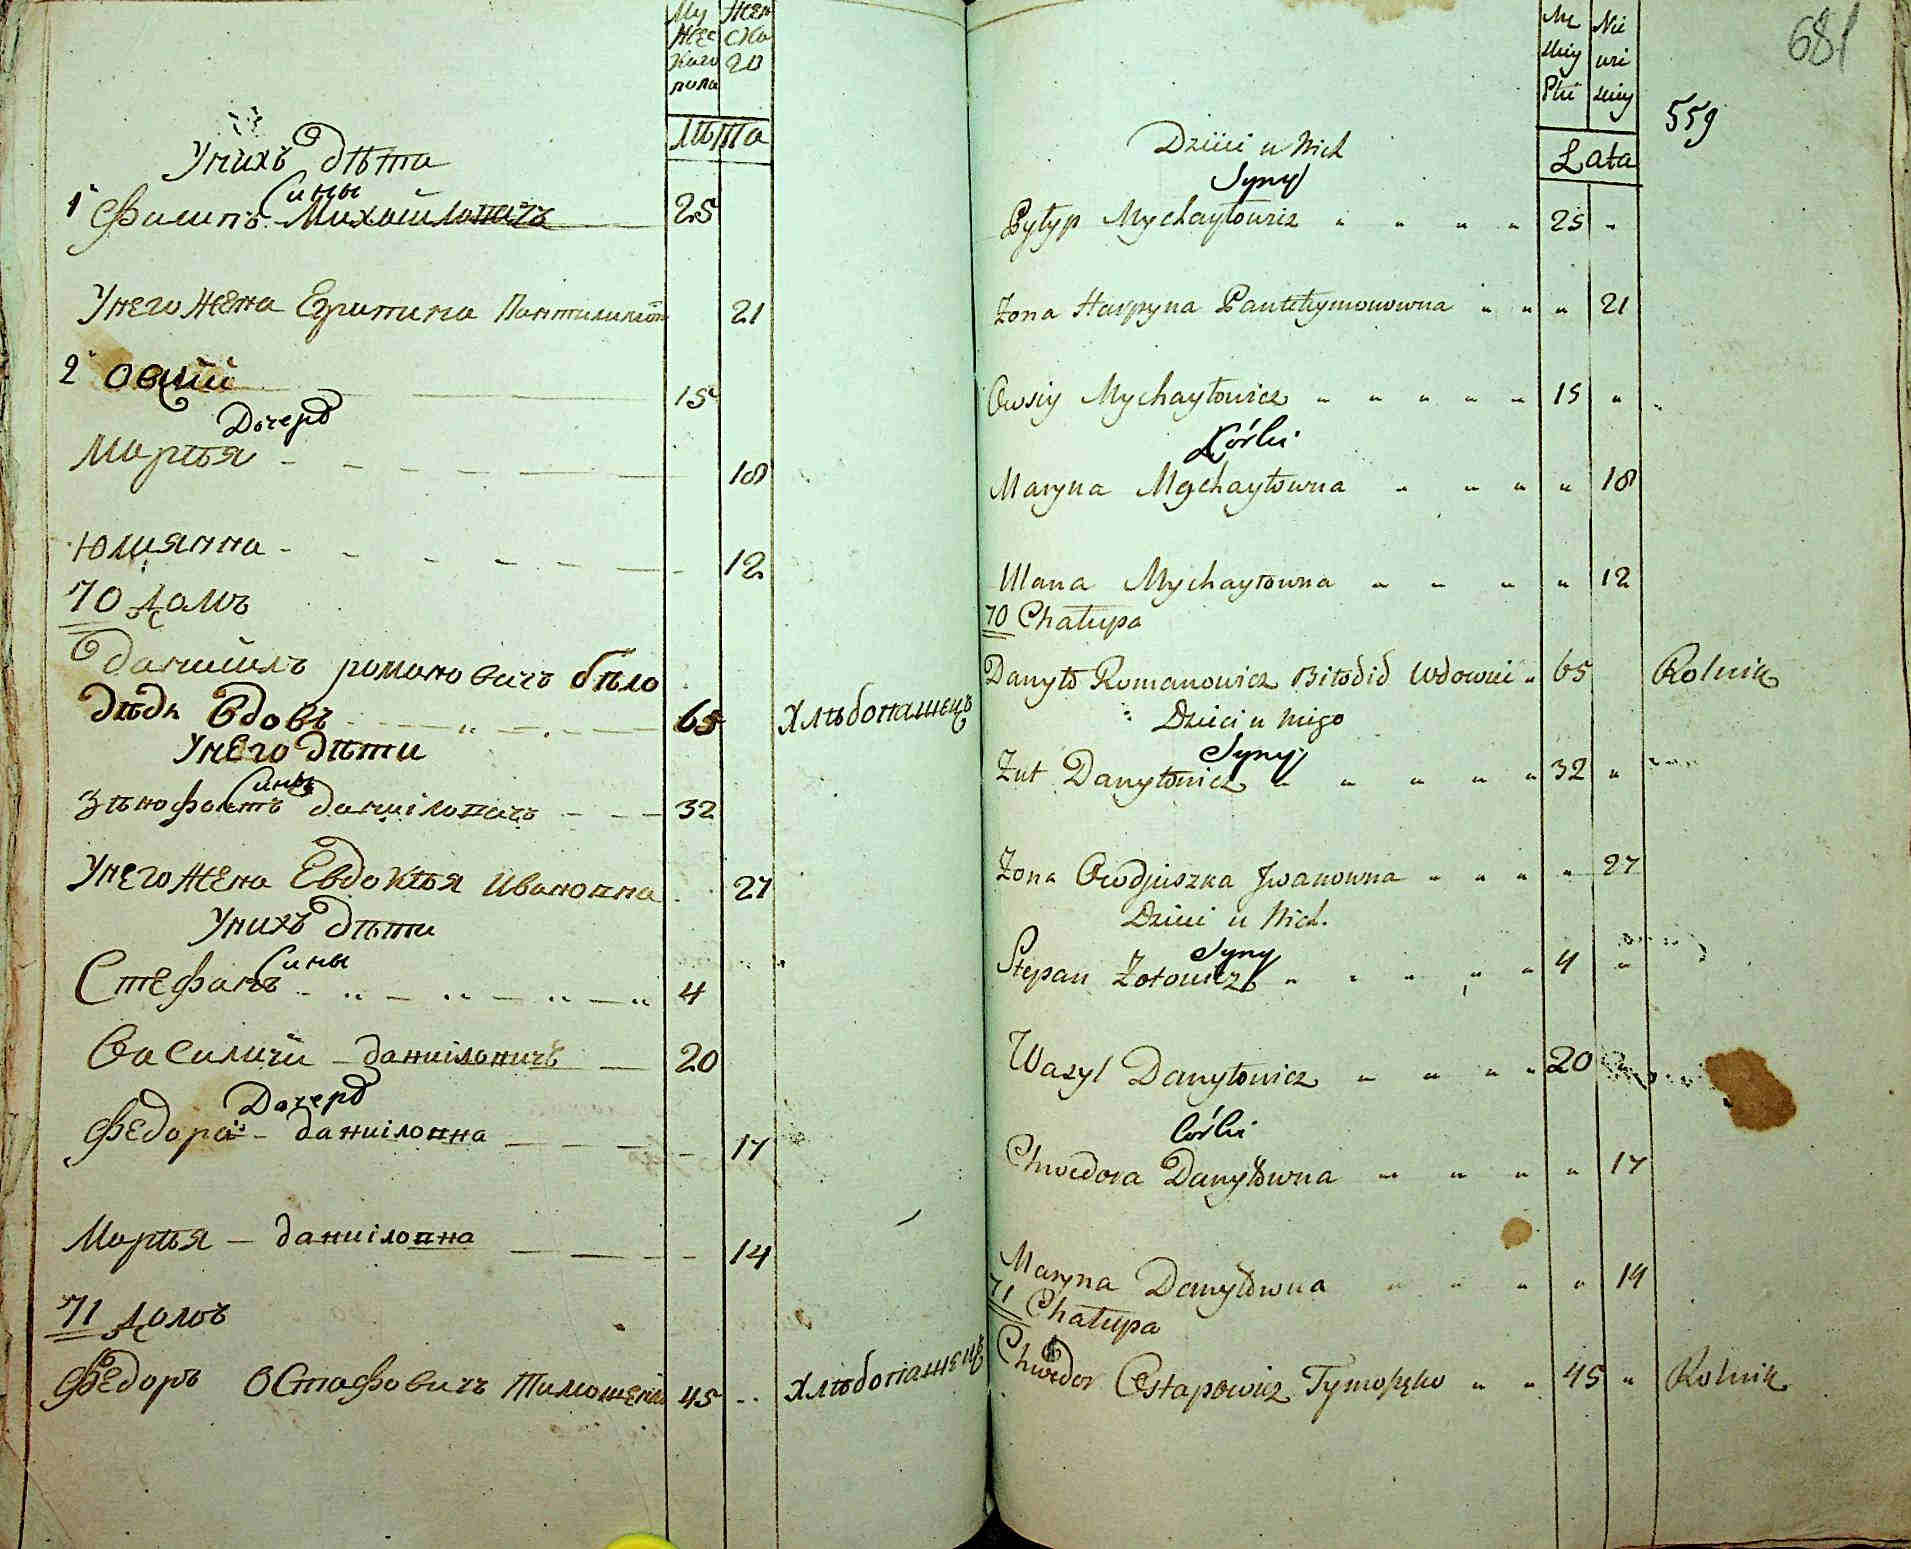 Му Жен
жес ска
каго го
пола
лѣта
Унихъ дѣти
Сины
1 Филипъ Михайловичъ 25
Унего жена Егрипина Пантилимон 21
2 Овсій 15
Дочерѣ
Марія 18
Юлиянна 12
70 домъ
Даниилъ романовичъ бѣло
дѣдъ вдовъ 65 Хлѣбопашецъ
Унего дѣти
Сины
Зѣнофонтъ даниіловичъ 32
Унего жена Евдокія Ивановна 27
Унихъ дѣти
Сины
Стефанъ 4
Василий даниіловичъ 20
Дочерѣ
Федора даниіловна 17
Марія даниіловна 14
71 домъ
Федоръ Остафовичъ Тимошенко 45 Хлѣбопашецъ
681
559
Lata
Dzieci u Nich
Syny
Pyłyp Mychayłowicz " " " " 25 "
Żona Harpyna Pantełymonowna " " " 21
Owsiy Mychayłowicz " " " " " 15 "
Córki
Maryna Mychayłowna " " " " 18
Ulana Mychayłowna " " " " 12
70 Chałupa
Danyło Romanowicz Biłodid Wdowiec " 65 Rolnik
Dzieci u niego
Syny
Zot Danyłowicz " " " " " 32 "
Żona Owdjuszka Jwanowna " " " " 27
Dzieci u Nich.
Syny
Stepan Zotowicz " " " " " 4 "
Wasyl Danyłowicz " " " " 20
Córki
Chwedora Danyłowna " " " " 17
Maryna Danyłowna " " " " 14
71 Chałupa
Chwedor Ostapowicz Tymoszenko " " 45 " Rolnik